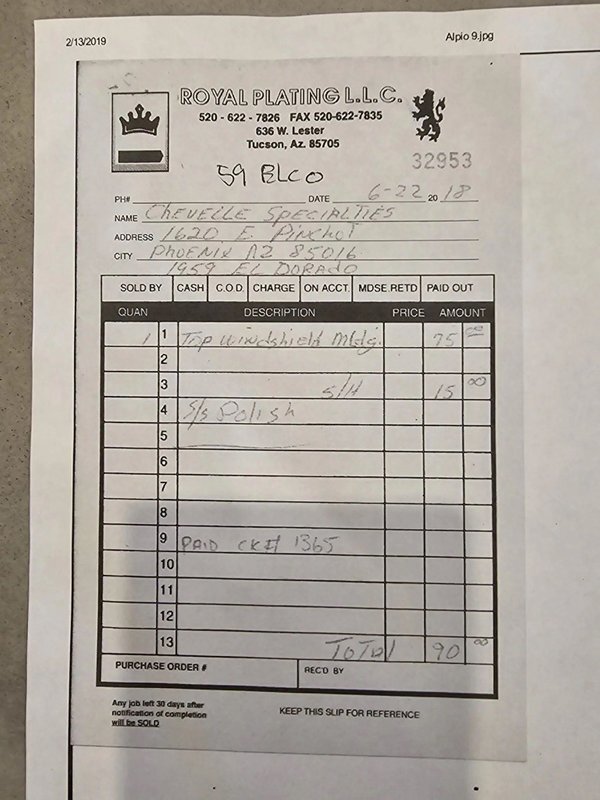 2/13/2019 Alpio 9.jpg
ROYAL PLATING L.L.C.
520 - 622 - 7826 FAX 520-622-7835
636 W. Lester
Tucson, Az. 85705
32953
59 ELCO
PH# DATE 6-22 20 18
NAME CHEVELLE SPECIALTIES
ADDRESS 1620 E PINCHOT
CITY PHOENIX AZ 85016
1959 EL DORADO
SOLD BY CASH C.O.D. CHARGE ON ACCT. MDSE.RETD PAID OUT
QUAN DESCRIPTION PRICE AMOUNT
1 1 Top Windshield Mldg. 75 00
2
3 S/H 15 00
4 S/S Polish
5
6
7
8
9 PAID CK# 1365
10
11
12
13 ToTal 90 00
PURCHASE ORDER # REC'D BY
Any job left 30 days after
notification of completion
will be SOLD
KEEP THIS SLIP FOR REFERENCE